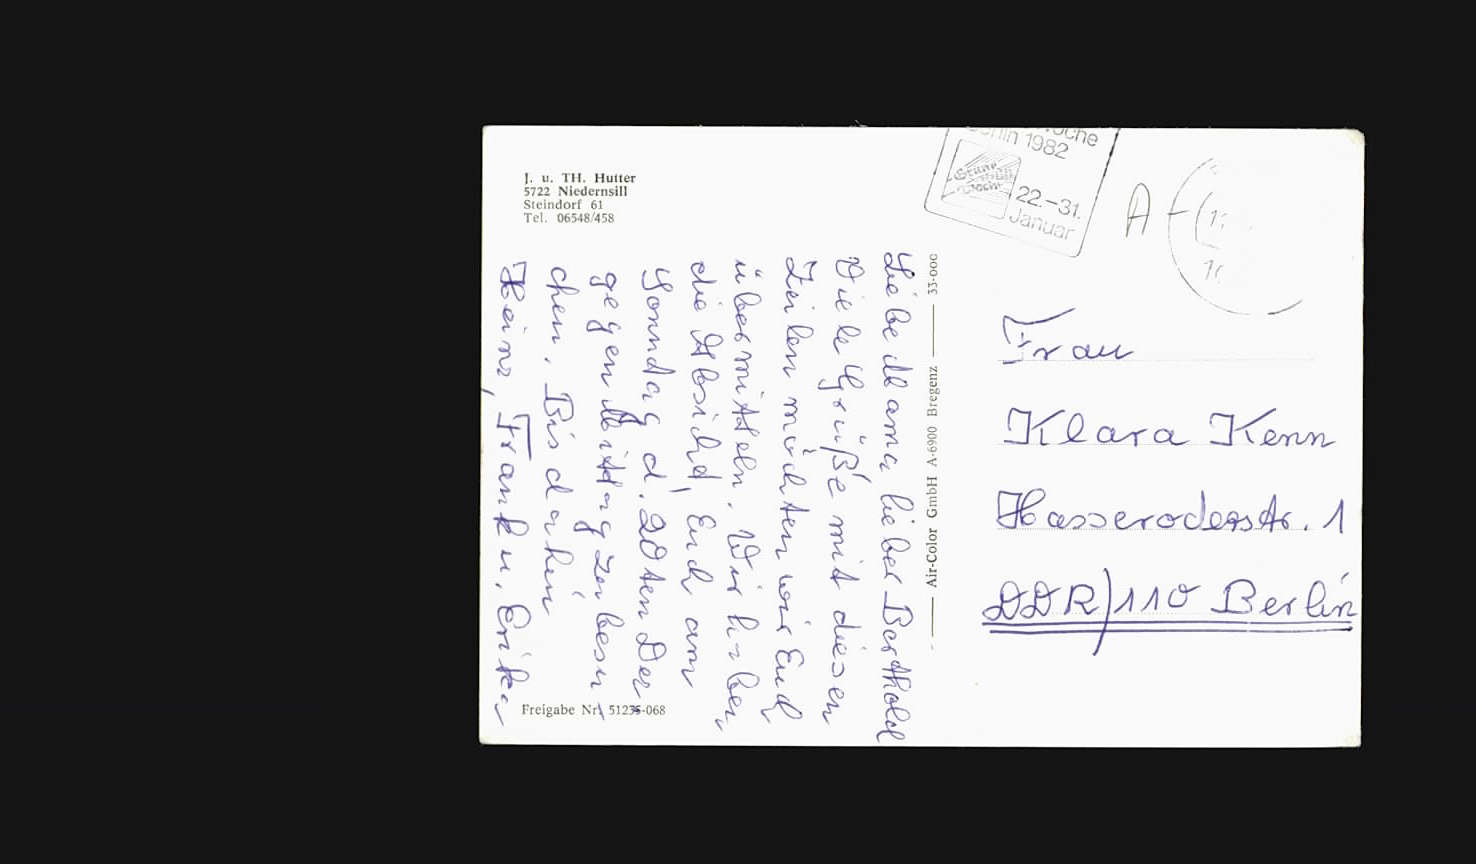 J. u. TH. Hutter
5722 Niedernsill
Steindorf 61
Tel. 06548/458
Berlin 1982
Grüne
Woche
22.-31.
Januar
A
Liebe Mama, lieber Barthold
Viele Grüße mit diesen
Zeilen möchten wir Euch
übermitteln. Wir haben
die Absicht, Euch am
Sonntag d. 20ten Der
gegen Mittag zu besu-
chen. Bis dahin
Heinz, Frank u. Erika
Air-Color GmbH A-6900 Bregenz 33-000
Frau
Klara Kenn
Hasseroderstr. 1
DDR/110 Berlin
Freigabe Nr. 51235-068